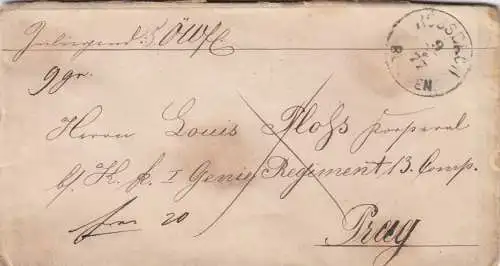 Inliegend 5 öWfl
9 gr.
Herrn Louis Floss Korporal
b/. K. k. I Genie Regiment 13. Comp.
frco 20
Prag